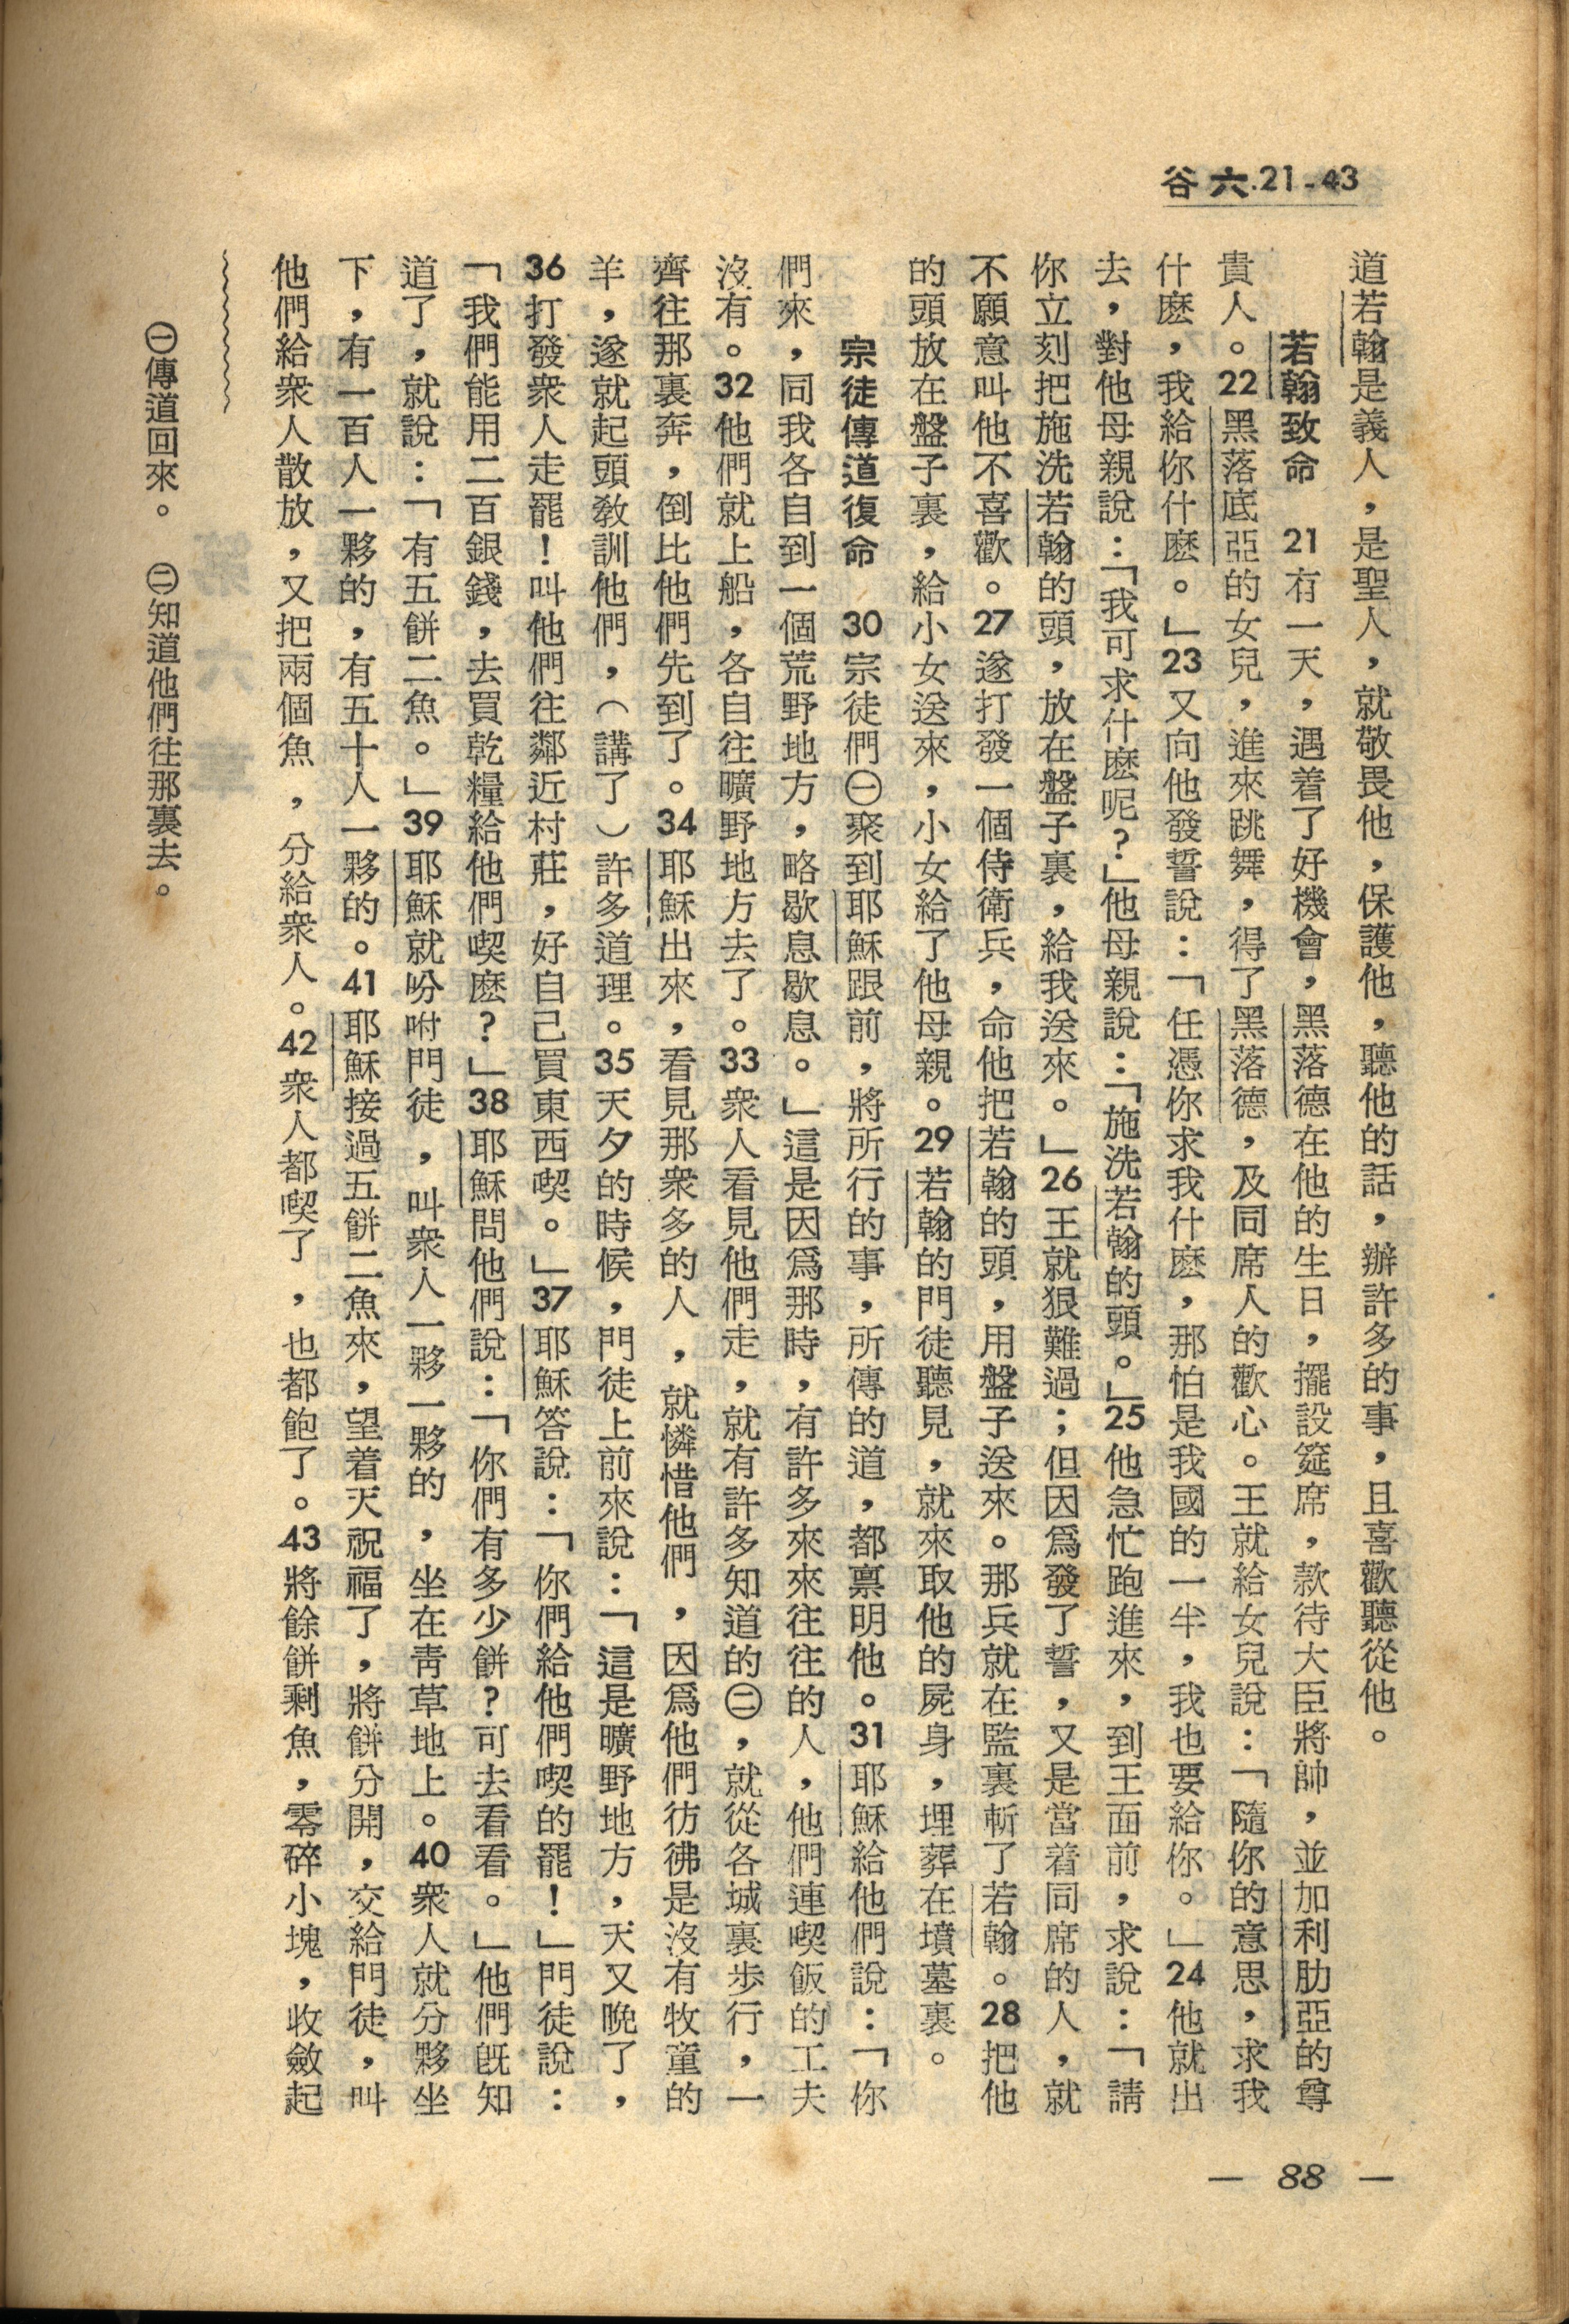 谷六.21-43
道若翰是義人，是聖人，就敬畏他，保護他，聽他的話，辦許多的事，且喜歡聽從他。
若翰致命　21有一天，遇着了好機會，黑落德在他的生日，擺設筵席，款待大臣將帥，並加利肋亞的尊
貴人。22黑落底亞的女兒，進來跳舞，得了黑落德，及同席人的歡心。王就給女兒說：「隨你的意思，求我
什麽，我給你什麽。」23又向他發誓說：「任憑你求我什麽，那怕是我國的一半，我也要給你。」24他就出
去，對他母親說：「我可求什麽呢？」他母親說：「施洗若翰的頭。」25他急忙跑進來，到王面前，求說：「請
你立刻把施洗若翰的頭，放在盤子裏，給我送來。」26王就狠難過；但因爲發了誓，又是當着同席的人，就
不願意叫他不喜歡。27遂打發一個侍衛兵，命他把若翰的頭，用盤子送來。那兵就在監裏斬了若翰。28把他
的頭放在盤子裏，給小女送來，小女給了他母親。29若翰的門徒聽見，就來取他的屍身，埋葬在墳墓裏。
宗徒傳道復命　30宗徒們㊀聚到耶穌跟前，將所行的事，所傳的道，都禀明他。31耶穌給他們說：「你
們來，同我各自到一個荒野地方，略歇息歇息。」這是因爲那時，有許多來來往往的人，他們連喫飯的工夫
沒有。32他們就上船，各自往曠野地方去了。33衆人看見他們走，就有許多知道的㊁，就從各城裏步行，一
齊往那裏奔，倒比他們先到了。34耶穌出來，看見那衆多的人，就憐惜他們，因爲他們彷彿是沒有牧童的
羊，遂就起頭敎訓他們，（講了）許多道理。35天夕的時候，門徒上前來說：「這是曠野地方，天又晚了，
36打發衆人走罷！叫他們往鄰近村莊，好自己買東西喫。」37耶穌答說：「你們給他們喫的罷！」門徒說：
「我們能用二百銀錢，去買乾糧給他們喫麽？」38耶穌問他們說：「你們有多少餅？可去看看。」他們旣知
道了，就說：「有五餅二魚。」39耶穌就吩咐門徒，叫衆人一夥一夥的，坐在靑草地上。40衆人就分夥坐
下，有一百人一夥的，有五十人一夥的。41耶穌接過五餅二魚來，望着天祝福了，將餅分開，交給門徒，叫
他們給衆人散放，又把兩個魚，分給衆人。42衆人都喫了，也都飽了。43將餘餅剩魚，零碎小塊，收斂起
㊀傳道回來。　㊁知道他們往那裏去。
— 88 —